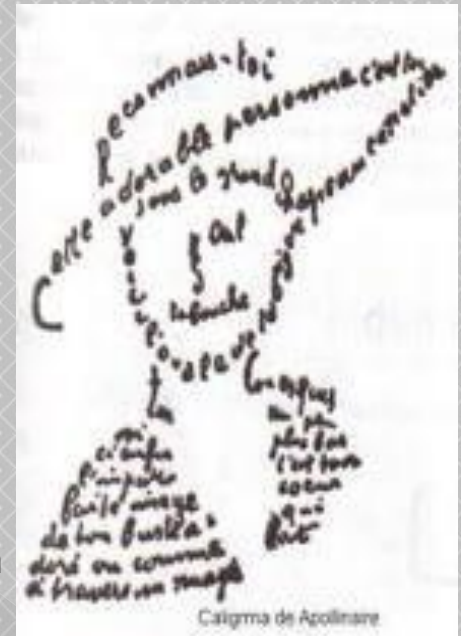 Reconnais-toi
Cette adorable personne c'est toi
sous le grand chapeau canotier
Oeil
la bouche
Voici l'ovale de ta figure
Ton
cou
ci enfin
l'impar
faite image
de ton buste a
doré vu comme
à travers un nuage
un peu
plus bas
c'est ton
coeur
qui
bat
Caligrma de Apollinaire